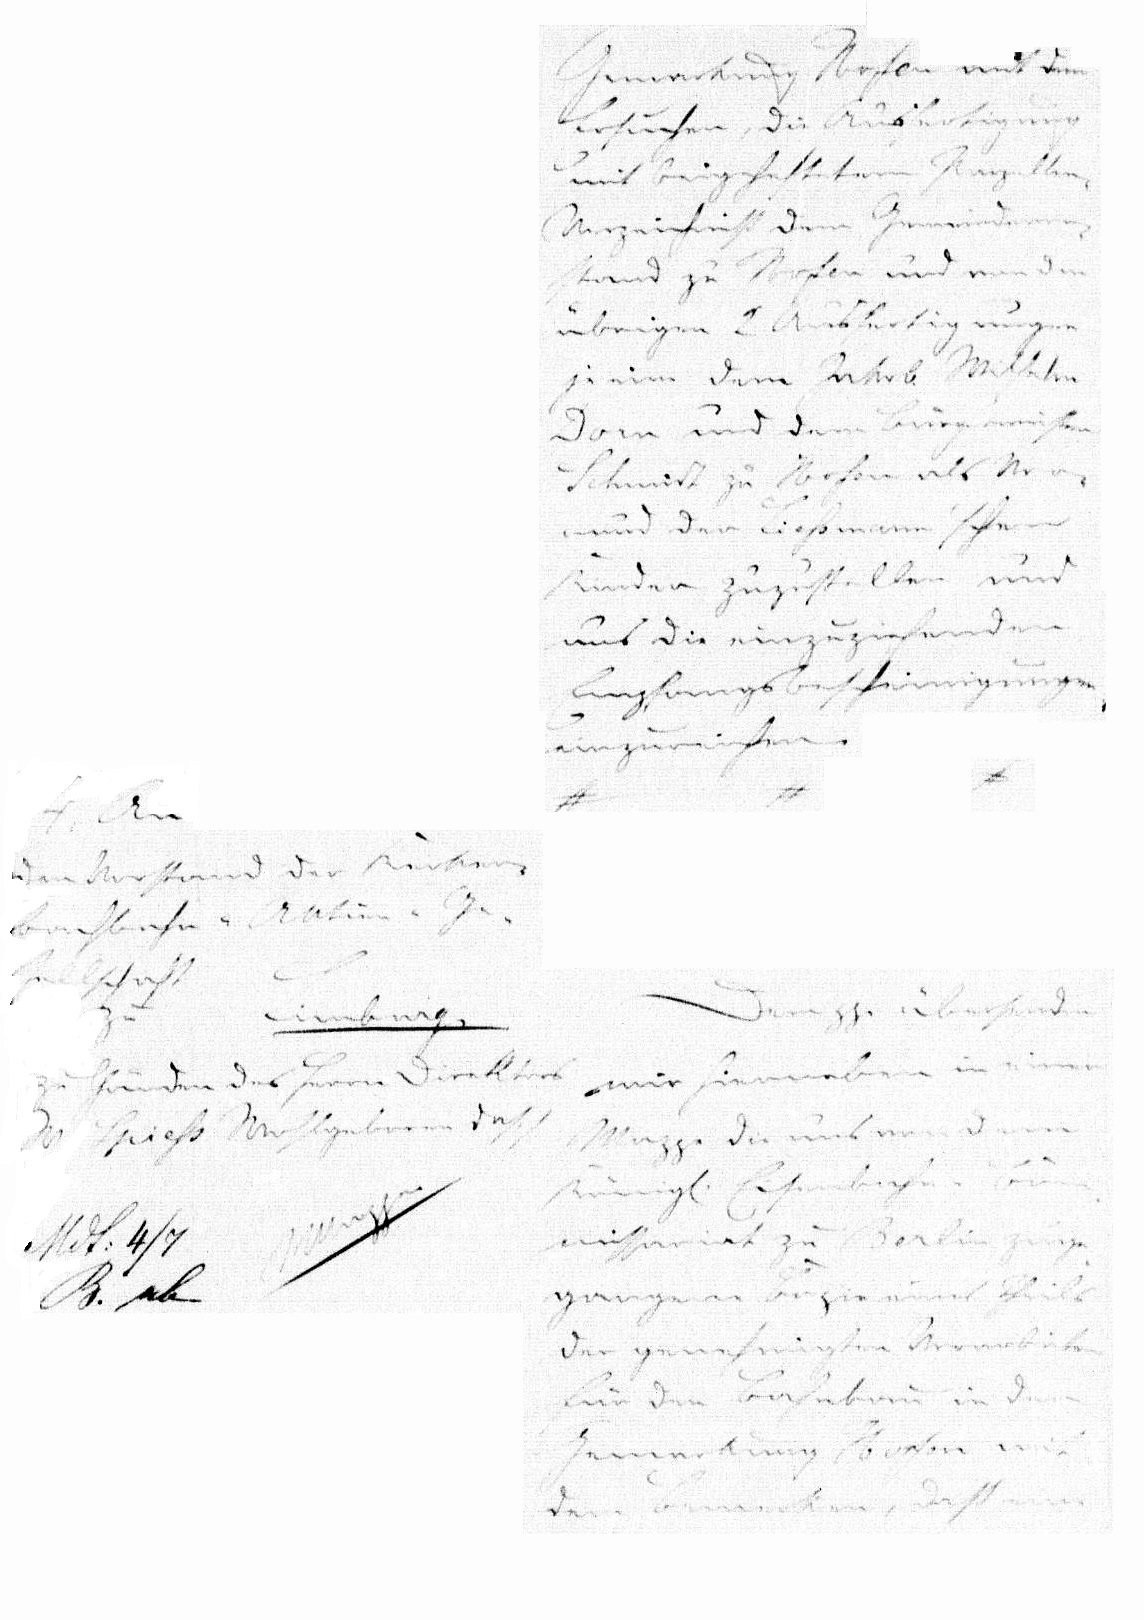 Gemarkung Nossen mit dem
Ersuchen, die Ausfertigung
mit beigeheftetem Parzellen-
Verzeichniß dem Gemeindevor-
stand zu Nossen und von den
übrigen 2 Ausfertigungen
je eine dem Jakob Wilhelm
Dorn und dem Bürgermeister
Schmidt zu Nossen als Vor-
mund der Tiefmann'schen
Kinder zuzustellen und
uns die einzuziehenden
Empfangsbescheinigungen
einzureichen.
4. An
den Vorstand der Kerker-
bachbahn-Aktien-Ge-
sellschaft
zu Limburg.
zu Händen des Herrn Direktors
Spieß Wohlgeboren das.
Mdt: 4/7
B. ab
Dem pp. übersenden
wir hierneben in einer
Mappe die uns von dem
Königl. Eisenbahn-Kom-
missariat zu Berlin zuge-
gangene Kopie eines Theils
der genehmigten Vorarbeiten
für den Bahnbau in der
Gemarkung Nossen mit
dem Bemerken, daß eine